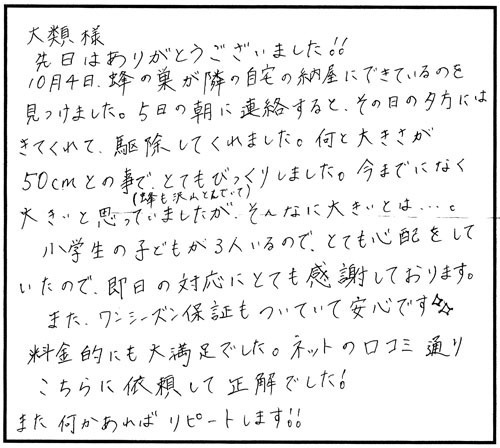 大類様
先日はありがとうございました!!
10月4日、蜂の巣が隣の自宅の納屋にできているのを
見つけました。5日の朝に連絡すると、その日の夕方には
きてくれて、駆除してくれました。何と大きさが
50cmとの事で、とてもびっくりしました。今までになく
(蜂も沢山とんでいて)
大きいと思っていましたが、そんなに大きいとは…。
小学生の子どもが3人いるので、とても心配をして
いたので、即日の対応にとても感謝しております。
また、ワンシーズン保証もついていて安心です
料金的にも大満足でした。ネットの口コミ通り
こちらに依頼して正解でした!
また何かあればリピートします!!